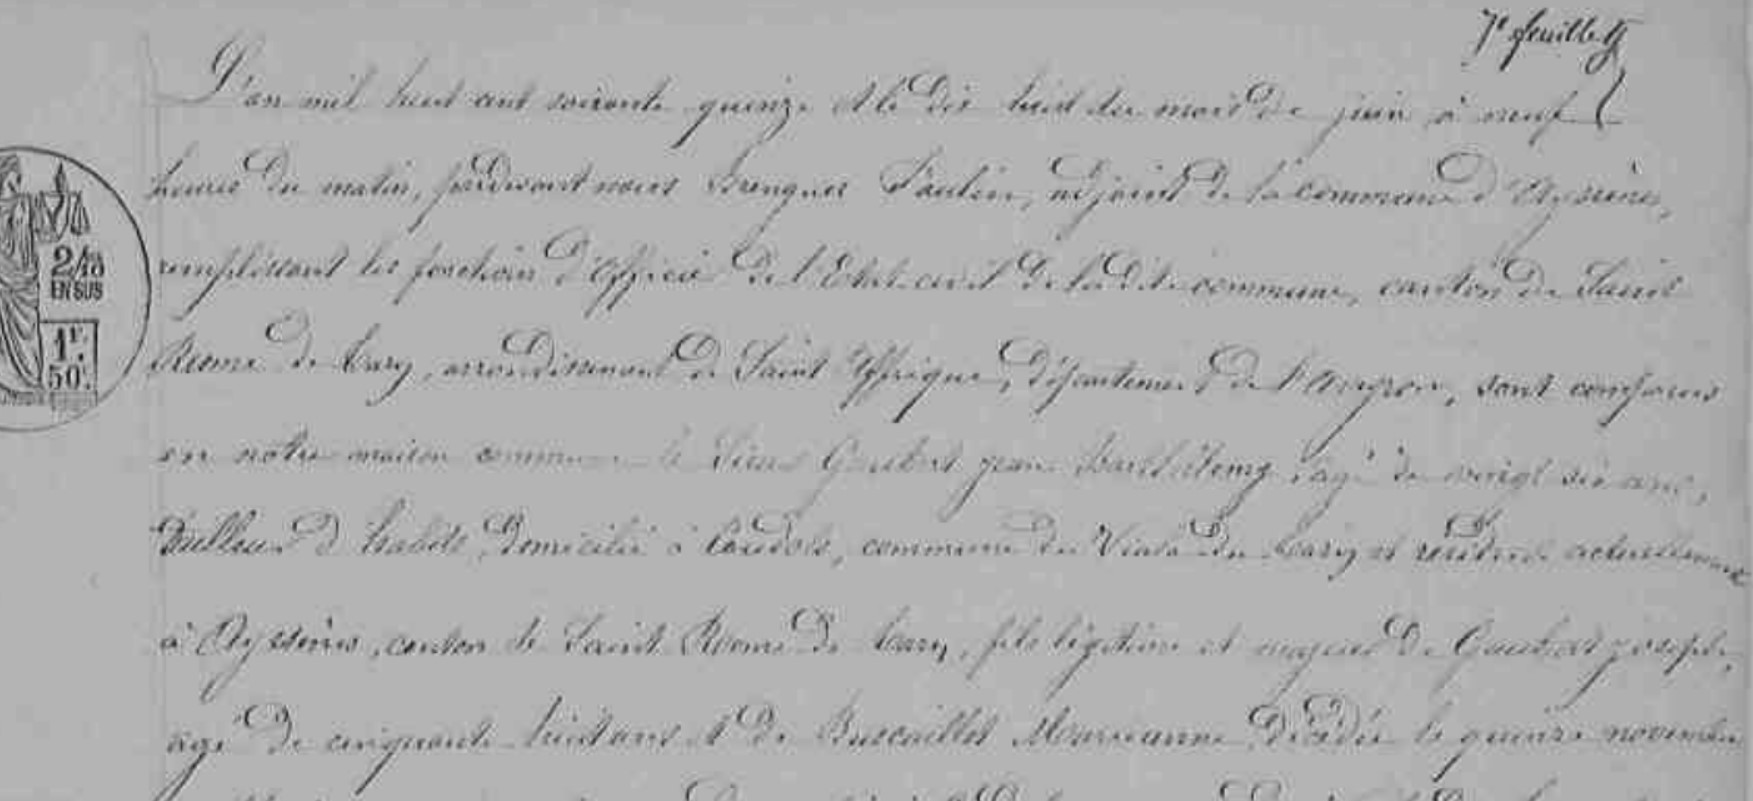 7e feuillet
L'an mil huit cent soixante quinze et le dix huit du mois de juin à neuf
heures du matin, pardevant nous Brenguer Paulin, adjoint de la commune d'Ayssènes,
2/10
EN SUS
remplissant les fonctions d'Officier de l'Etat civil de la dite commune, canton de Saint
1F.
50c.
Rome de Tarn, arrondissement de Saint Affrique, département de l'Aveyron, sont comparus
en notre maison commune le Sieur Gaubert jean Barthélemy, agé de vingt six ans,
tailleur d'habits, domicilié à Coudols, commune du Viala du Tarn et résidant actuellement
à Ayssènes, canton de Saint Rome de Tarn, fils légitime et majeur de Gaubert joseph,
agé de cinquante huit ans et de Buscaillet Marianne, décédée le quinze novembre